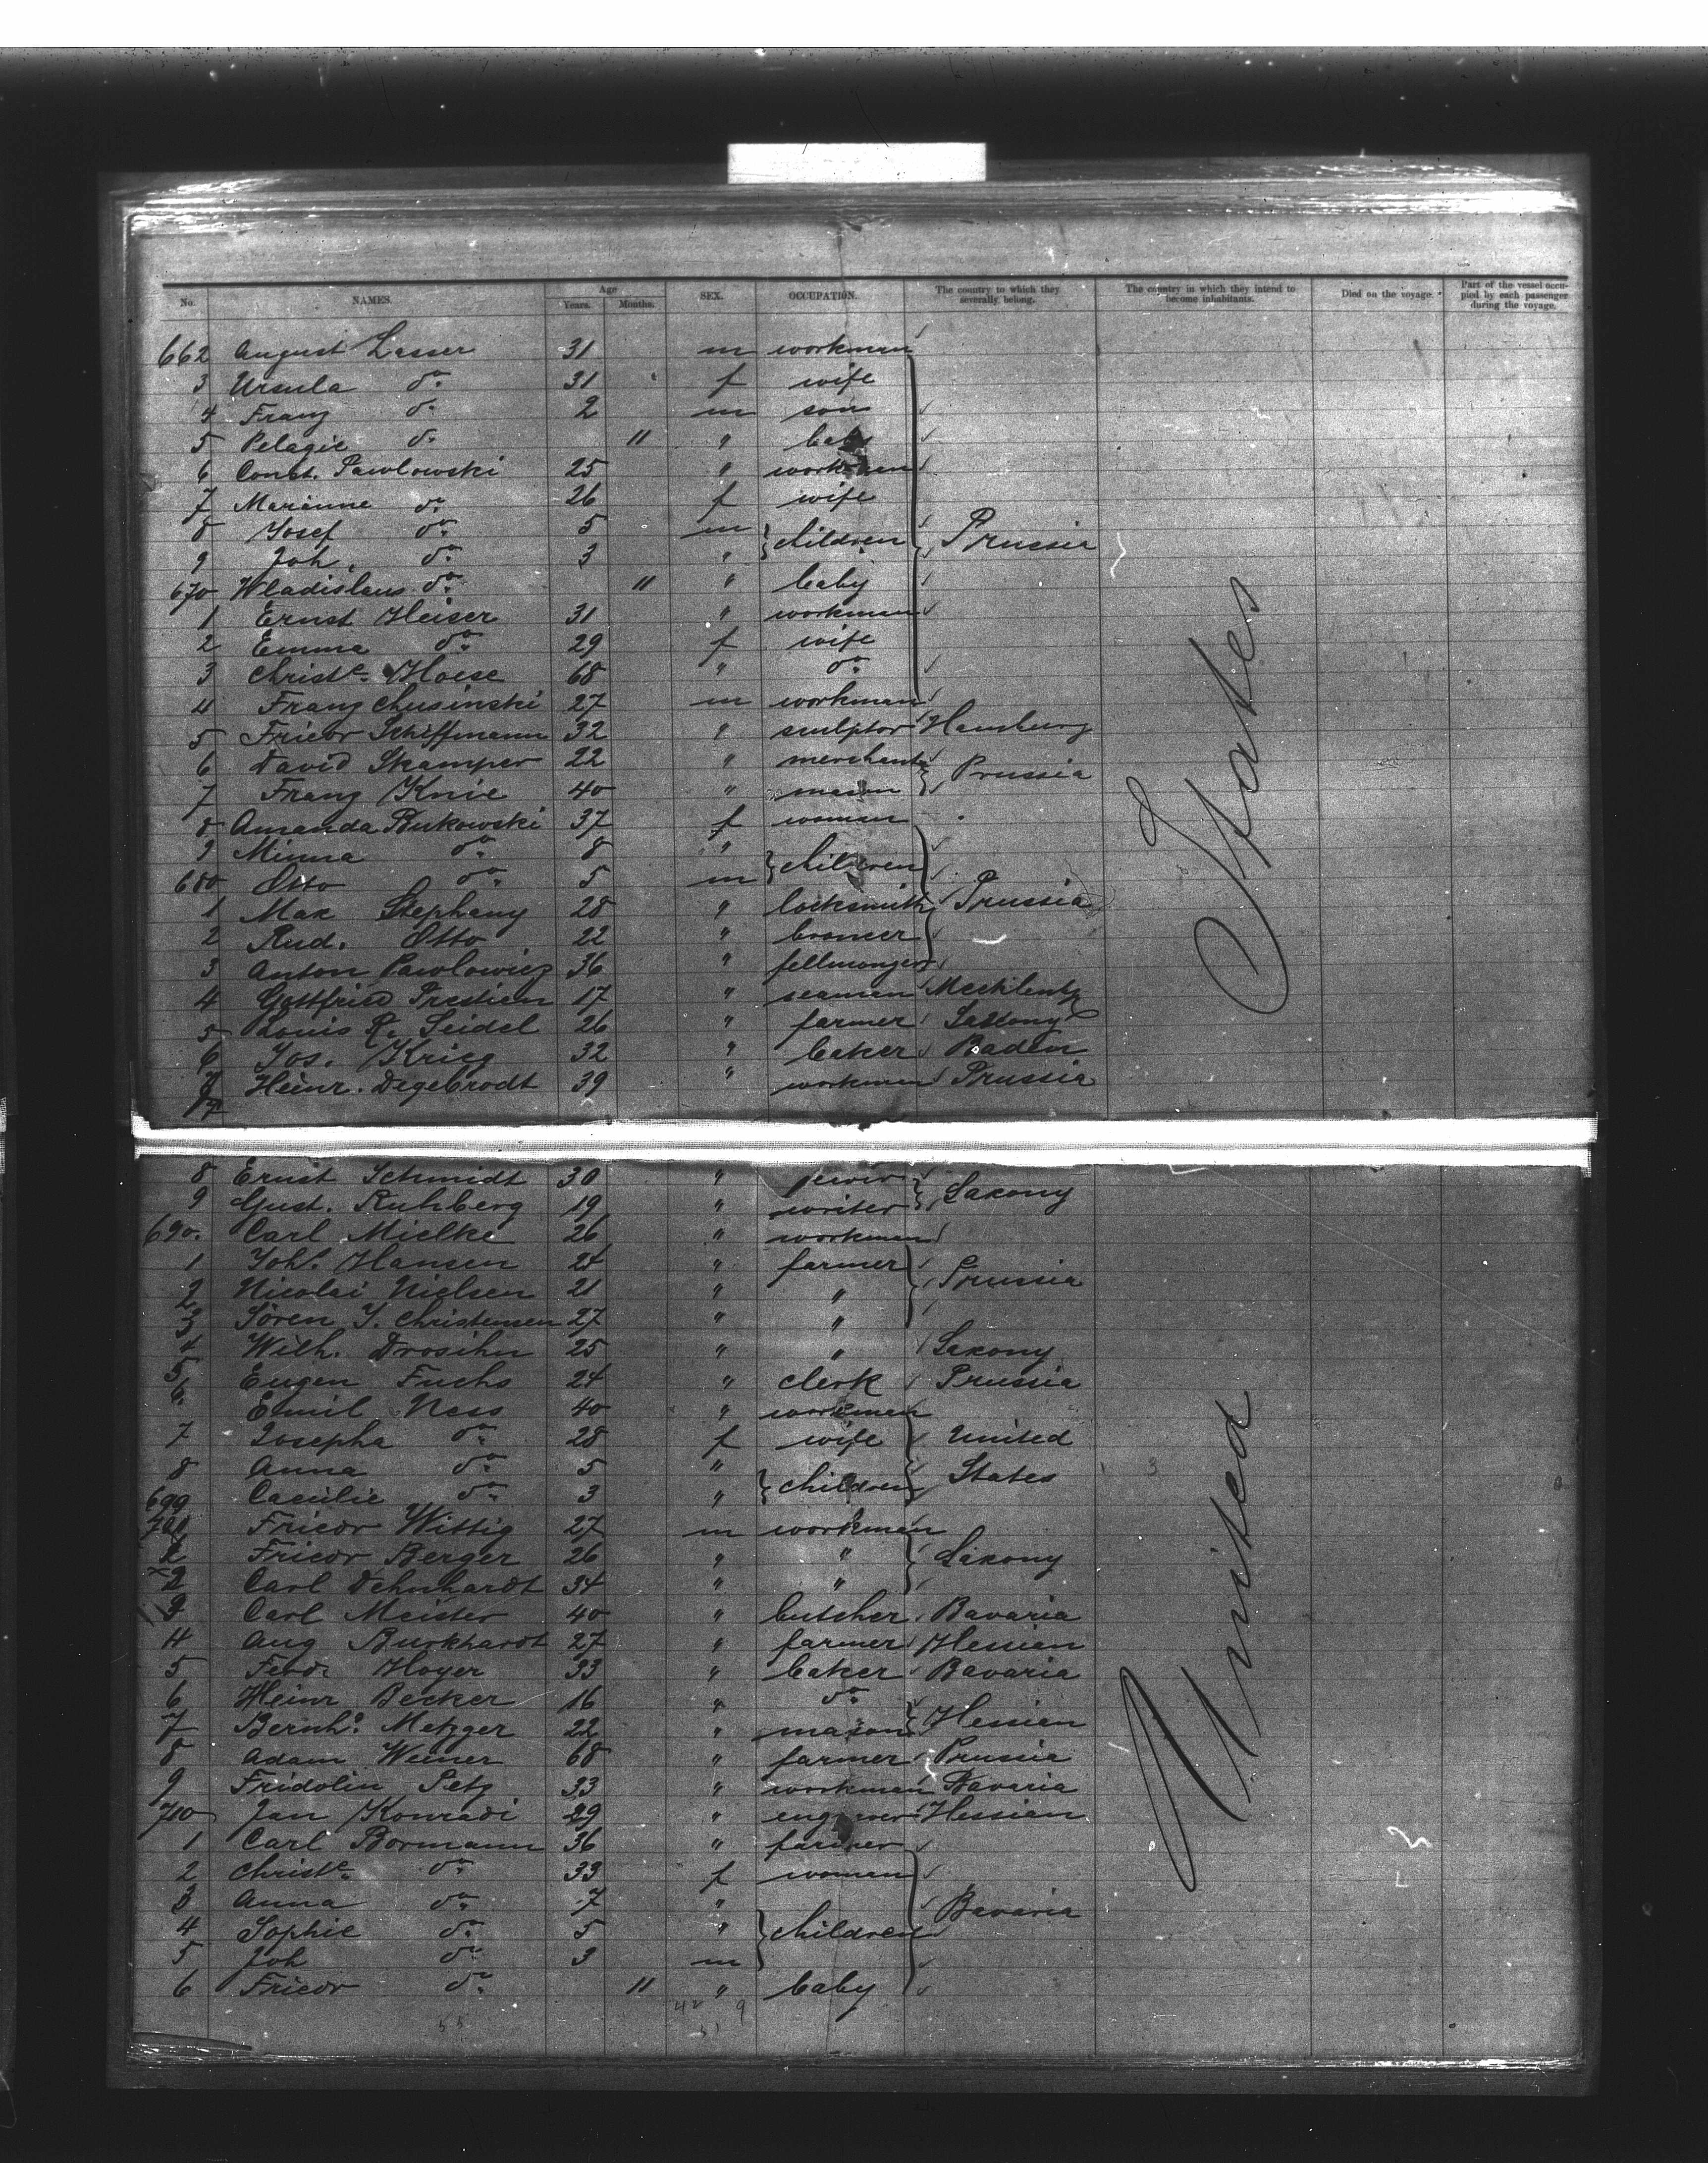 No. NAMES. Age Years. Months. SEX. OCCUPATION. The country to which they severally belong. The country in which they intend to become inhabitants. Died on the voyage. Part of the vessel occupied by each passenger during the voyage.
662 August Lasser 31 m workman
3 Ursula do 31 f wife
4 Franz do 2 m son
5 Pelagie do 11 " baby
6 Const. Pawlowski 25 " workman
7 Marianne do 26 f wife
8 Josef do 5 m children Prussia
9 Joh. do 3 "
670 Wladislaus do 11 " baby
1 Ernst Heiser 31 " workman
2 Emma do 29 f wife
3 Christe. Hoese 68 " do
4 Franz Chusinski 27 m workman
5 Friedr Schiffmann 32 " sculptor Hamburg
6 David Skamper 22 " merchant Prussia
7 Franz Knie 40 " mason
8 Amanda Bukowski 37 f woman
9 Minna do 8 " children
680 Otto do 5 m
1 Max Stephany 28 " locksmith Prussia
2 Rud. Otto 22 "
3 Anton Pawlowicz 36 " fellmonger
4 Gottfried 17 " seaman Mecklenbg
5 Louis R. Seidel 26 " farmer Saxony
6 Jos. Krieg 32 " baker Baden
7 Heinr. Degebrodt 39 " workman Prussia
8 Ernst Schmidt 30 " Saxony
9 Gust. Ruhberg 19 " writer
690. Carl Mielke 26 " workman
1 Johs. Hansen 24 " farmer Prussia
2 Nicolai Nielsen 21 " "
3 Sören J. Christensen 27 " "
4 Wilh. Drosihn 25 " " Saxony
5 Eugen Fuchs 24 " clerk Prussia
6 Emil Ness 40 " workman
7 Josepha do 28 f wife United
8 Anna do 5 " children States
699 Caecilie do 3 "
Friedr Wittig 27 m workman
Friedr Berger 26 " " Saxony
2 Carl Dehnhardt 34 " "
3 Carl Meister 40 " butcher Bavaria
4 Aug Burkhardt 27 " farmer Hessian
5 Ferd. Hoyer 33 " baker Bavaria
6 Heinr Becker 16 " do
7 Bernhd. Metzger 22 " mason Hessian
8 Adam Weiner 68 " farmer Prussia
9 Fridolin Petz 33 " workman Bavaria
710 Jan Konradi 29 " engraver Hessian
1 Carl Bormann 36 " farmer
2 Christe. do 33 f woman
3 Anna do 7 " Bavaria
4 Sophie do 5 " children
5 Joh do 3 m
6 Friedr do 11 " baby
55 42 9
51
United States